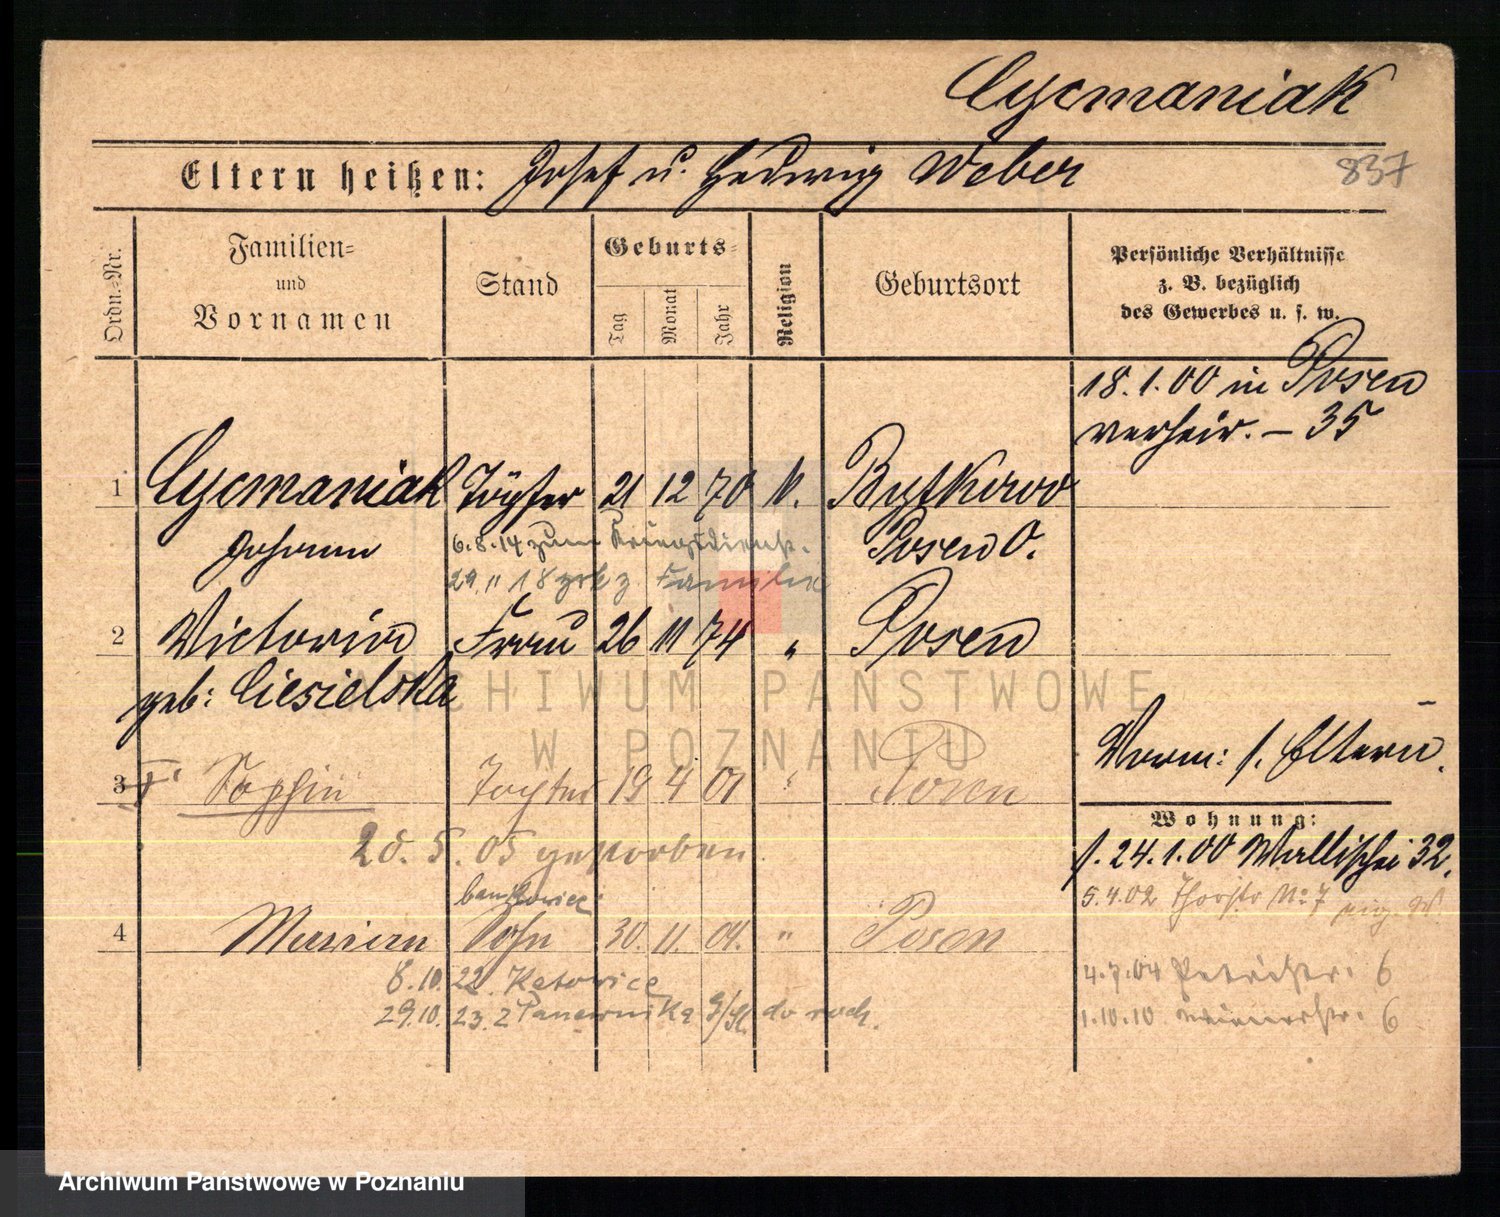 Cycmaniak
837
Eltern heißen: Josef u. Hedwig Weber
Ordn.-Nr.
Familien-
und
Vornamen
Stand
Geburts-
Tag
Monat
Jahr
Religion
Geburtsort
Persönliche Verhältnisse
z. B. bezüglich
des Gewerbes u. s. w.
18.1.00 in Posen
verheir. – 35
1 Cycmaniak Töpfer 21 12 70 k. Bytkowo
Johann Posen O.
6.8.14 zum Kriegsdienst.
29. 11 18 zrkz Familie
2 Victoria Frau 26 11 74 " Posen
geb: Ciesielska
Vorm: s. Eltern.
3 Sophie Tochter 19 4 01 " Posen
28. 5. 05 gestorben.
Wohnung:
s. 24.1.00 Wallischei 32.
5.4.02 Thorstr No 7
4 Marian Sohn 30. 11. 04. " Posen
4.7.04 6
8.10.22. Katowice
29.10.23. z
1.10.10 6
ARCHIWUM PAŃSTWOWE
W POZNANIU
Archiwum Państwowe w Poznaniu